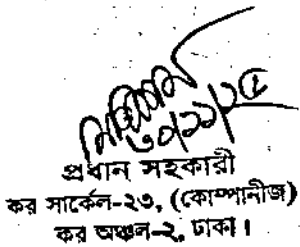 ৩০/১১/২৫
প্রধান সহকারী
কর সার্কেল-২৩, (কোম্পানীজ)
কর অঞ্চল-২, ঢাকা।